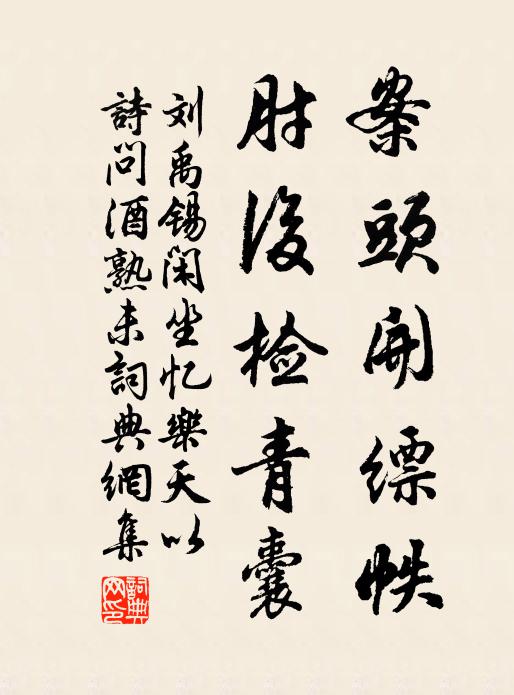 案頭開縹帙
肘後检青囊
刘禹锡闲坐忆樂天以
詩问酒熟未詞典網集
詞典網印